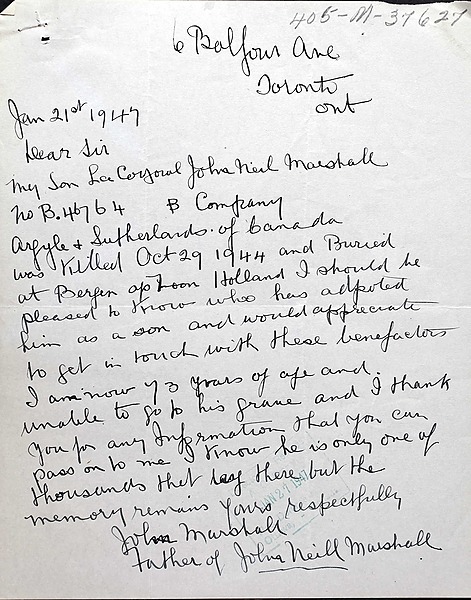 405-M-37627
6 Balfour Ave
Toronto
Ont
Jan 21st 1947
Dear Sir
My Son Lce Corporal John Neil Marshall
No B.46764 B Company
Argyle & Sutherlands. of Canada
was Killed Oct 29 1944 and Buried
at Bergen op Zoon Holland I should be
pleased to Know who has adpoted
him as a son and would appreciate
to get in touch with these benefactors
I am now 73 years of age and.
unable to go to his grave and I thank
you for any Information that you can
pass on to me I Know he is only one of
thousands that lay there but the
memory remains Yours respectfully
John Marshall
Father of John Neill Marshall